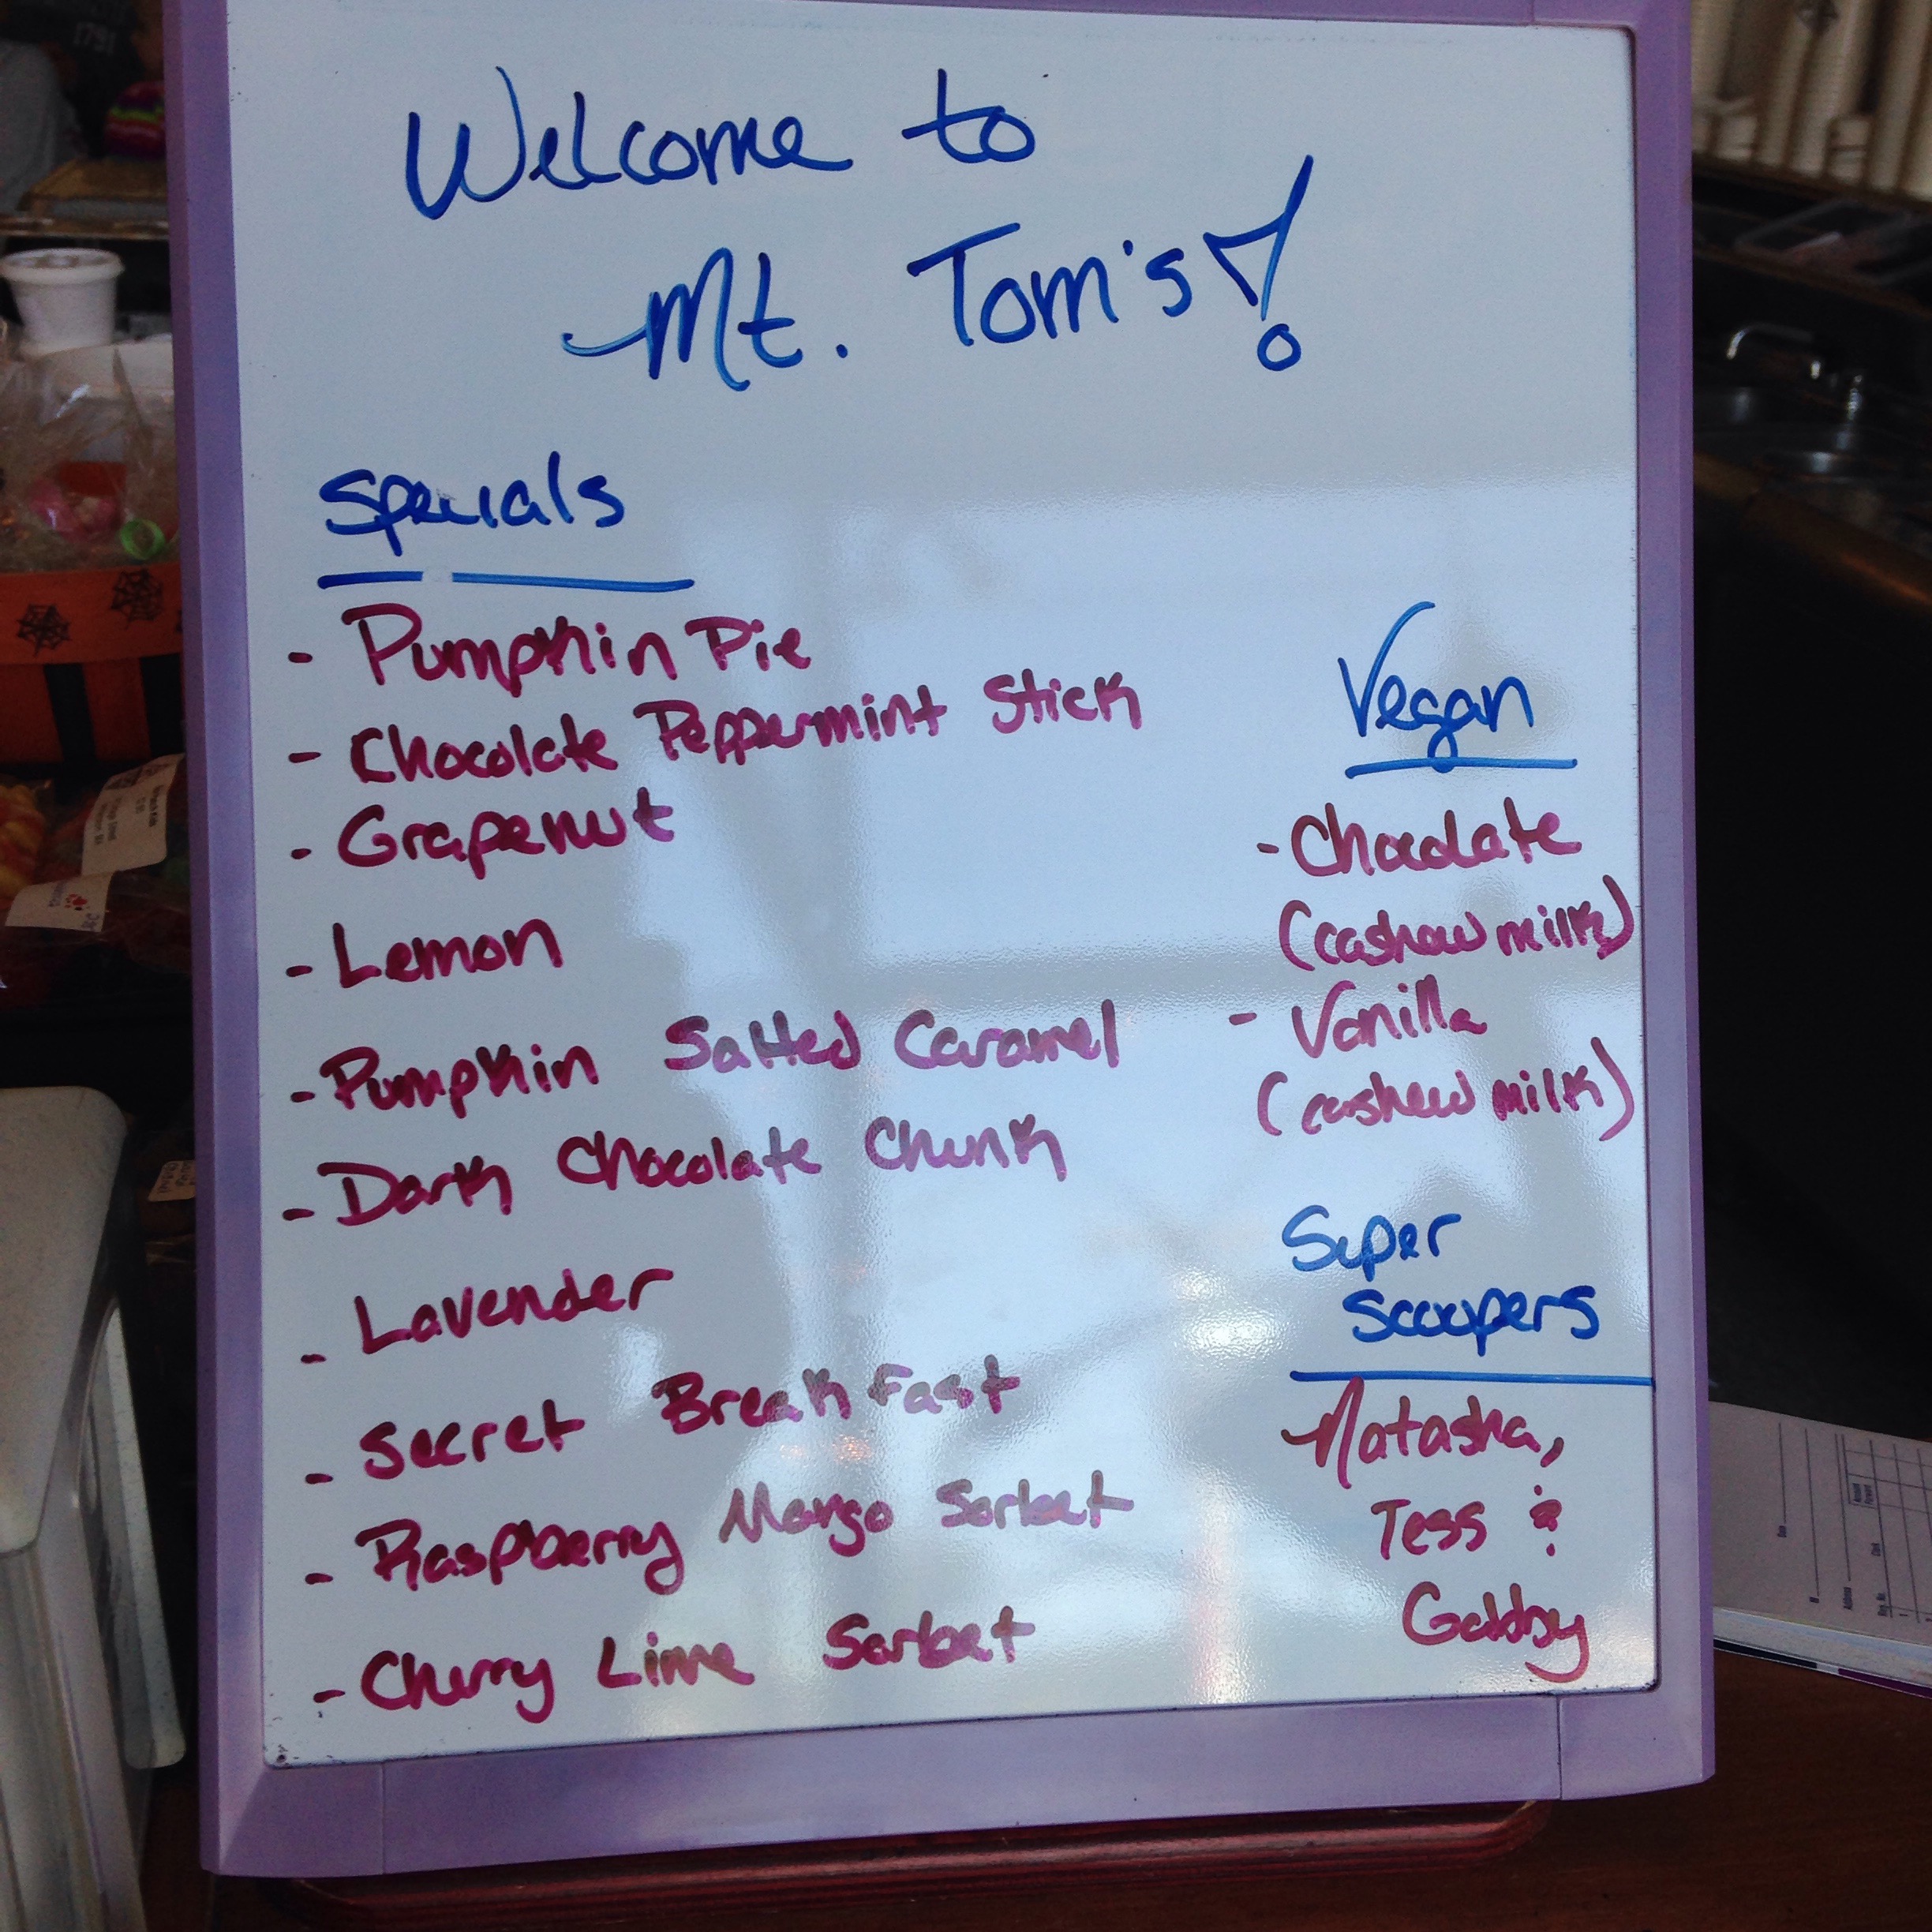 Welcome to
Mt. Tom's!
Specials
- Pumpkin Pie
- Chocolate Peppermint Stick
- Grapenut
- Lemon
- Pumpkin Salted Caramel
- Dark Chocolate Chunk
- Lavender
- Secret Breakfast
- Raspberry Mango Sorbet
- Cherry Lime Sorbet
Vegan
- Chocolate
(cashew milk)
- Vanilla
(cashew milk)
Super
Scoopers
Natasha,
Tess &
Gabby